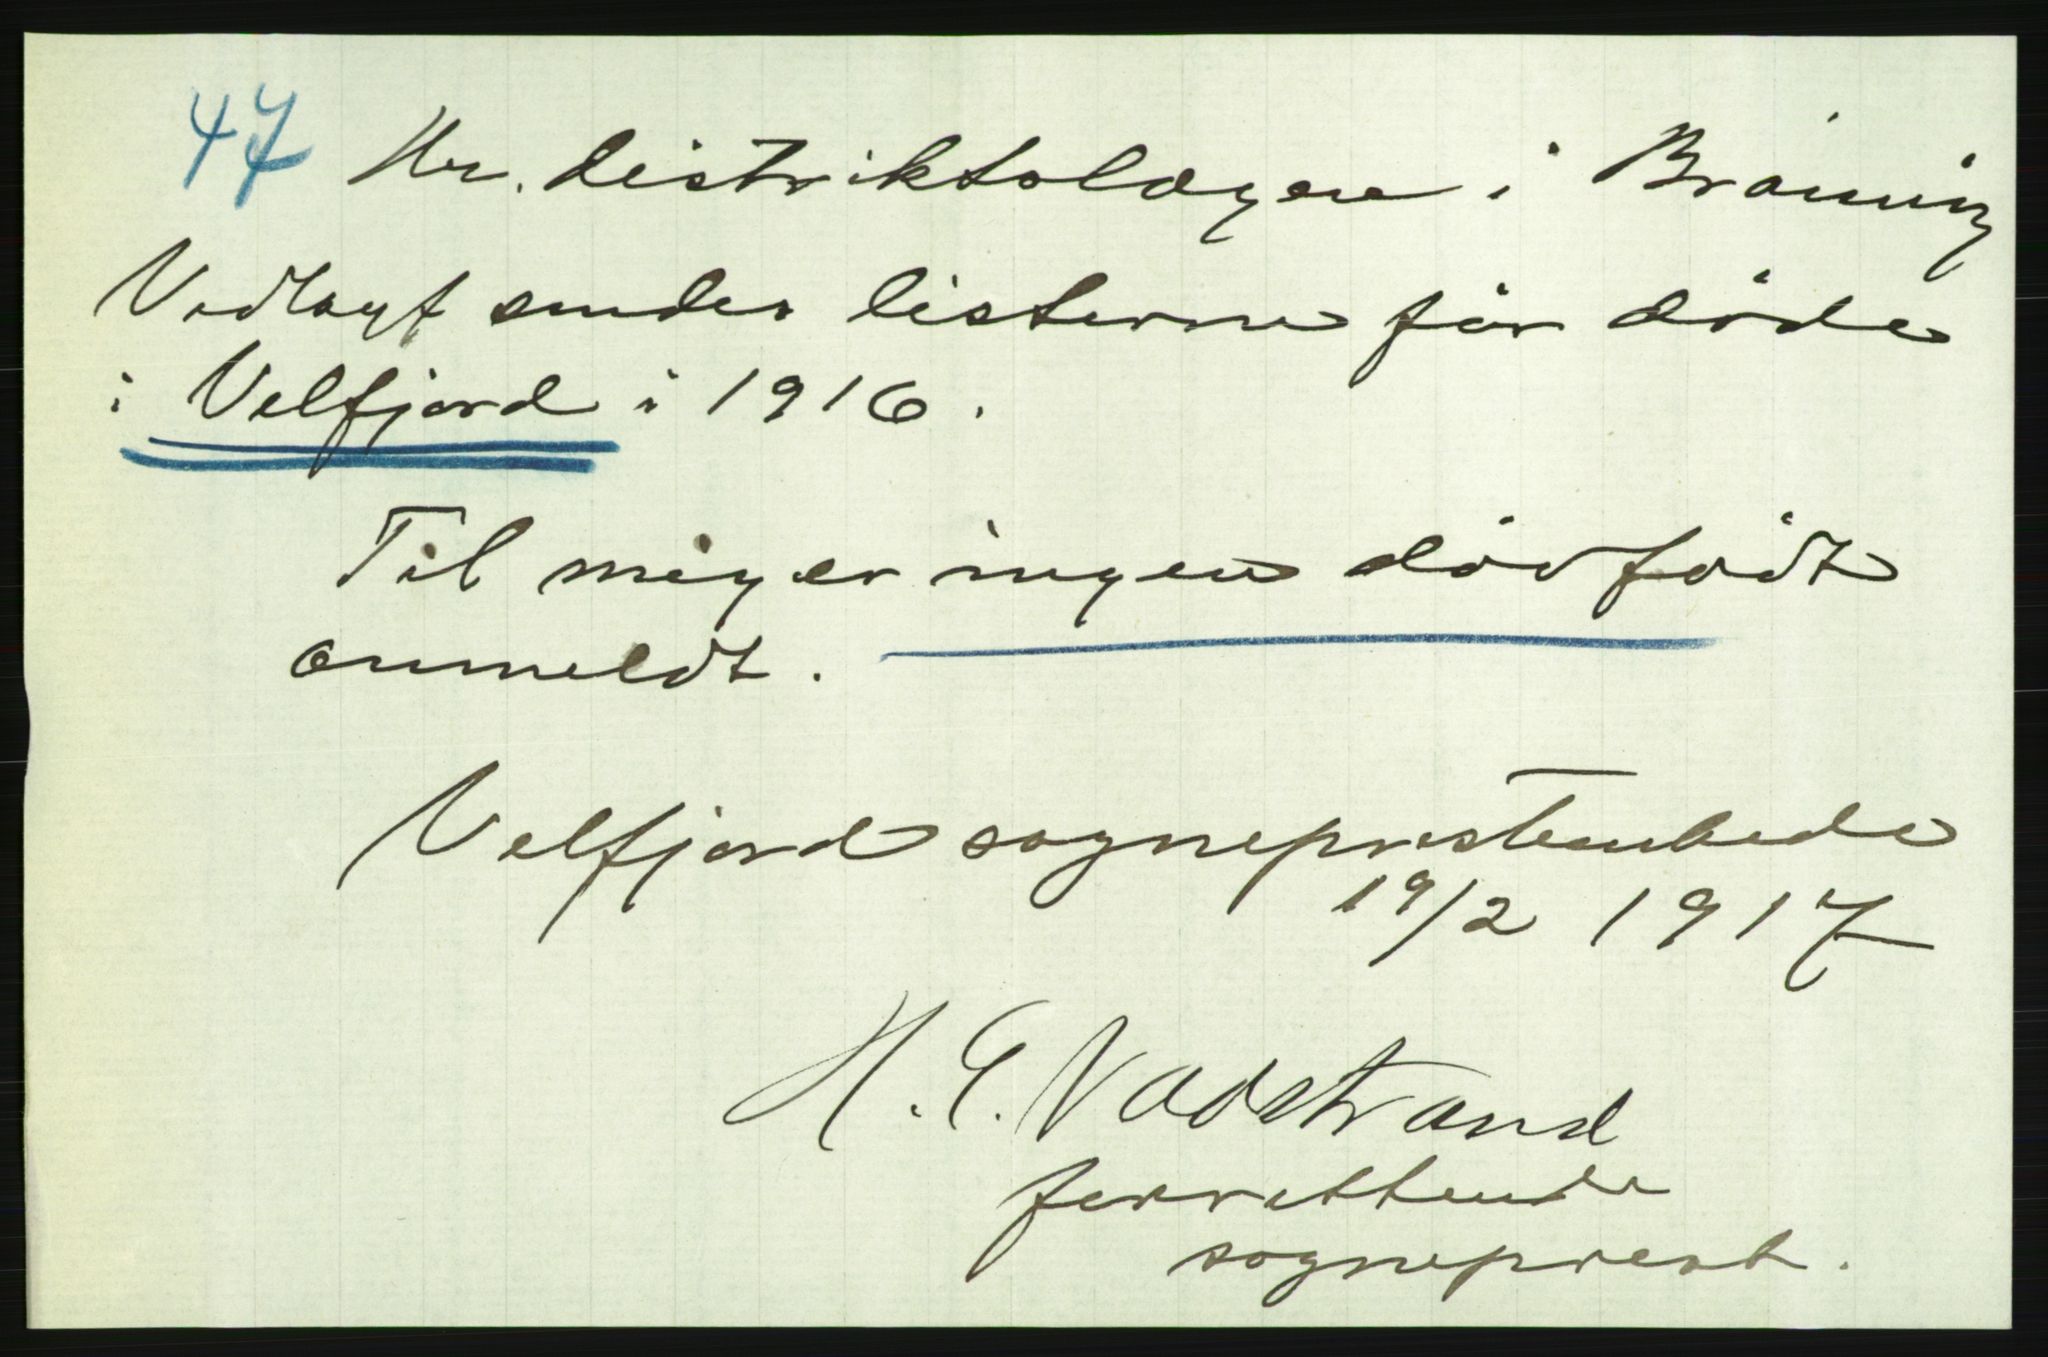 47 Hr. distriktslægen i Brönnöy
Vedlagt sendes listerne for döde
i Velfjord i 1916.
Til mig er ingen dödfödt
anmeldt.
Velfjord sogneprestembede
19/2 1917
H. E. Vadstrand
forrettende
sogneprest.